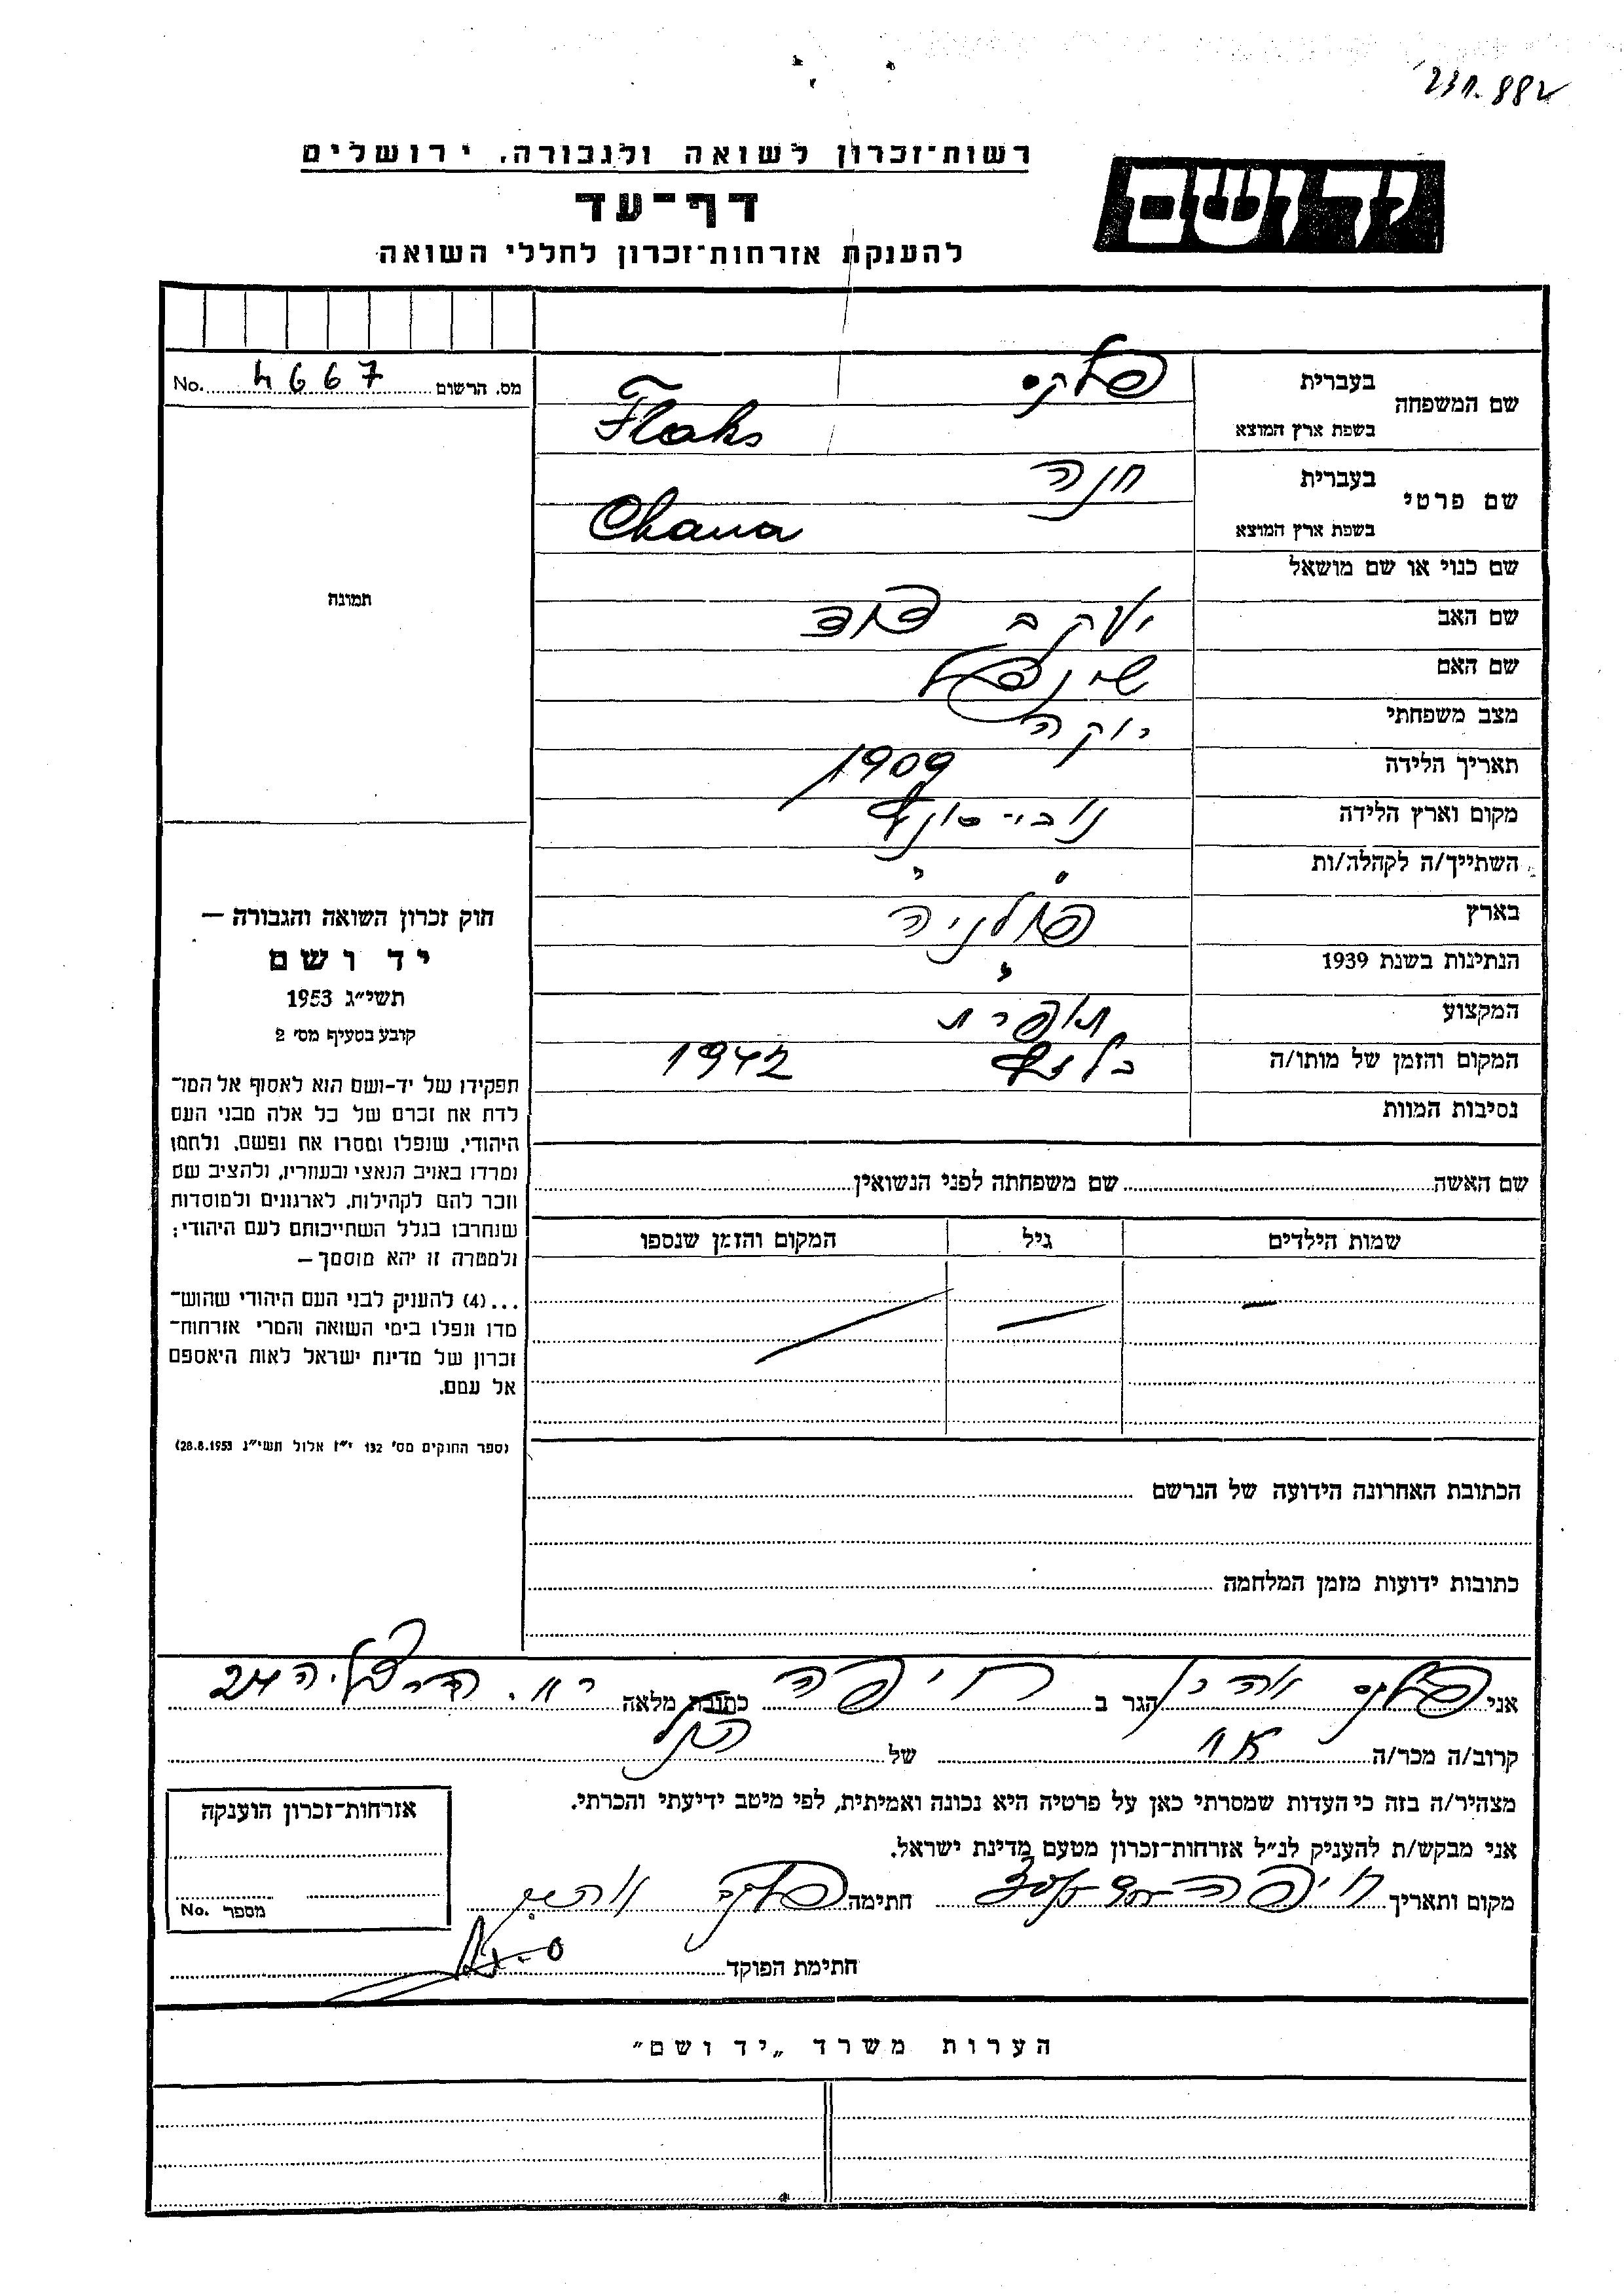 231.882
רשות־זכרון לשואה ולגבורה, ירושלים
יד ושם
דף־עד
להענקת אזרחות־זכרון לחללי השואה
מס. הרשום 4667 No.
שם המשפחה
בעברית פלקס
בשפת ארץ המוצא Flaks
שם פרטי
בעברית חנה
בשפת ארץ המוצא Chana
שם כנוי או שם מושאל
שם האב יעקב דוד
שם האם שינדל
מצב משפחתי רוקה
תאריך הלידה 1909
מקום וארץ הלידה נובי-סונץ
השתייך/ה לקהלה/ות " "
בארץ פולניה
הנתינות בשנת 1939 "
המקצוע תופרת
המקום והזמן של מותו/ה בלזץ 1942
נסיבות המוות
תמונה
חוק זכרון השואה והגבורה —
יד ושם
תשי"ג 1953
קובע בסעיף מס' 2
תפקידו של יד-ושם הוא לאסוף אל המו־
לדת את זכרם של כל אלה מבני העם
היהודי, שנפלו ומסרו את נפשם, נלחמו
ומרדו באויב הנאצי ובעוזריו, ולהציב שם
וזכר להם לקהילות, לארגונים ולמוסדות
שנחרבו בגלל השתייכותם לעם היהודי;
ולמטרה זו יהא מוסמך —
...(4) להעניק לבני העם היהודי שהוש־
מדו ונפלו בימי השואה והמרי אזרחות־
זכרון של מדינת ישראל לאות היאספם
אל עמם.
(ספר החוקים מס' 132 י"ז אלול תשי"ג 28.8.1953)
שם האשה שם משפחתה לפני הנשואין
שמות הילדים גיל המקום והזמן שנספו
הכתובת האחרונה הידועה של הנרשם
כתובות ידועות מזמן המלחמה
אני פלקס אהרן הגר ב חיפה כתובת מלאה רח. הרצליה 24
קרוב/ה מכר/ה אח של הנ"ל
מצהיר/ה בזה כי העדות שמסרתי כאן על פרטיה היא נכונה ואמיתית, לפי מיטב ידיעתי והכרתי.
אני מבקש/ת להעניק לנ"ל אזרחות־זכרון מטעם מדינת ישראל.
מקום ותאריך חיפה חתימה פלקס אהרן
חתימת הפוקד
אזרחות־זכרון הוענקה
מספר No.
הערות משרד „יד ושם"